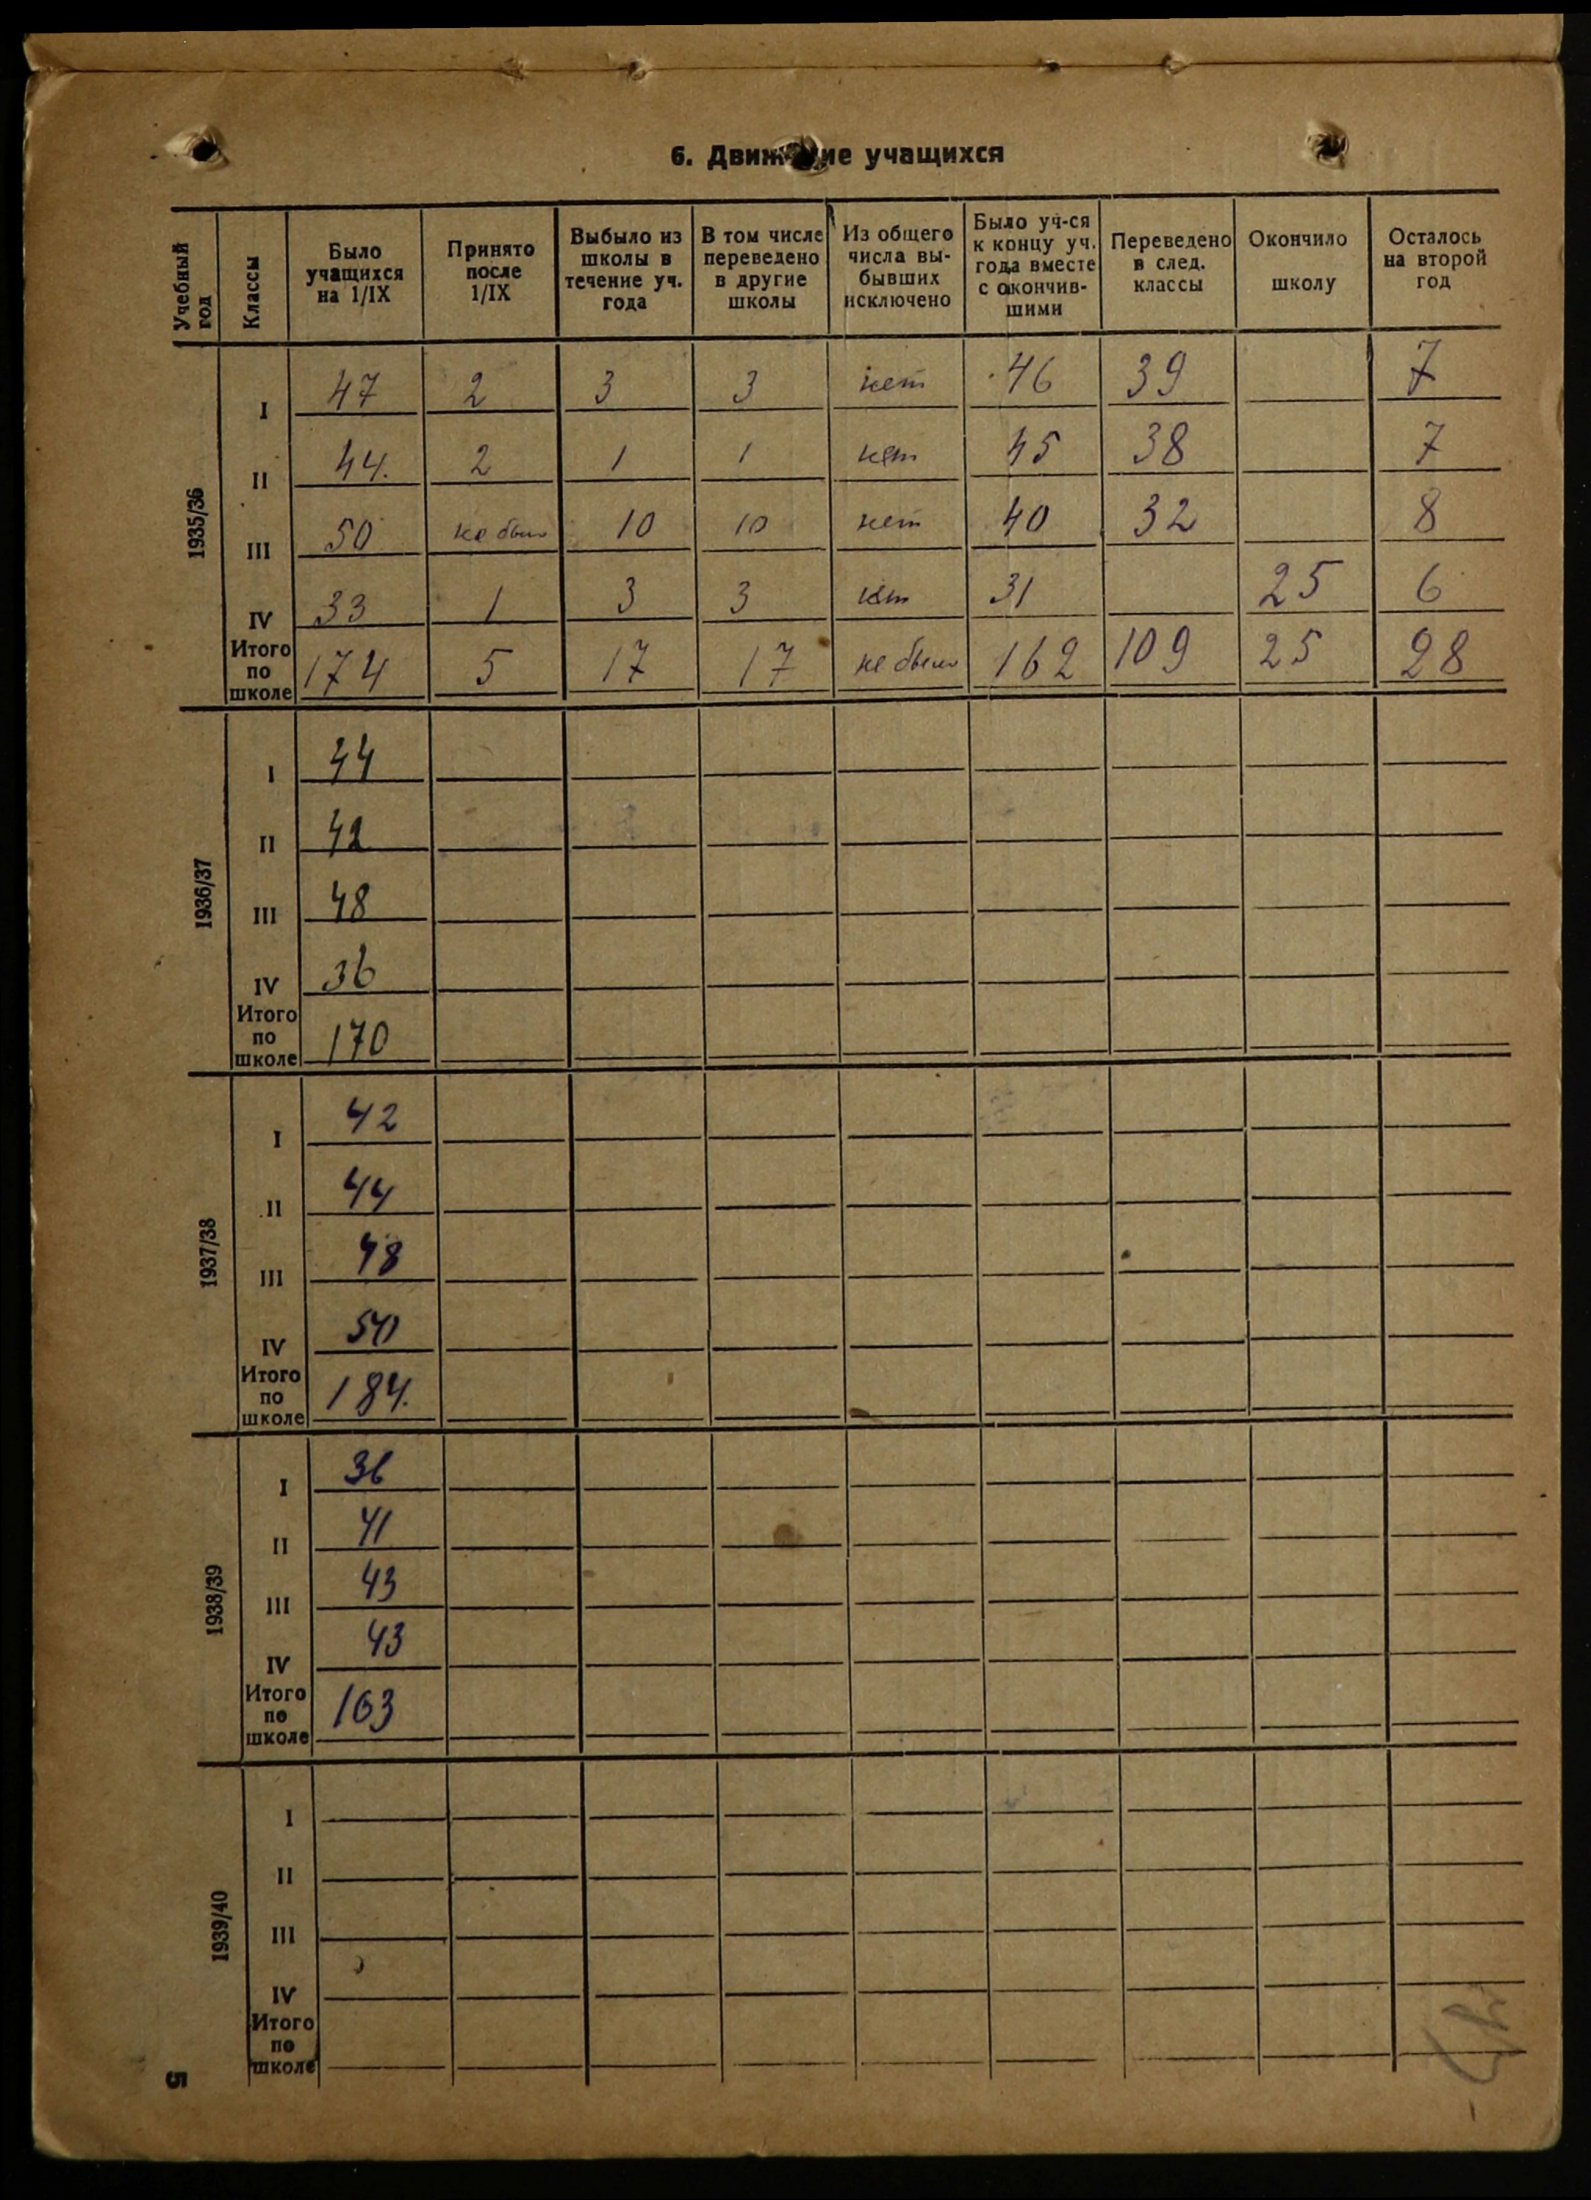 6. Движение учащихся
Учебный год | Классы | Было учащихся на 1/IX | Принято после 1/IX | Выбыло из школы в течение уч. года | В том числе переведено в другие школы | Из общего числа вы-бывших исключено | Было уч-ся к концу уч. года вместе с окончив-шими | Переведено в след. классы | Окончило школу | Осталось на второй год
1935/36
I 47 2 3 3 нет 46 39 7
II 44. 2 1 1 нет 45 38 7
III 50 не было 10 10 нет 40 32 8
IV 33 1 3 3 нет 31 25 6
Итого по школе 174 5 17 17 не было 162 109 25 28
1936/37
I 44
II 42
III 48
IV 36
Итого по школе 170
1937/38
I 42
II 44
III 48
IV 50
Итого по школе 184.
1938/39
I 36
II 41
III 43
IV 43
Итого по школе 163
1939/40
I
II
III
IV
Итого по школе
5